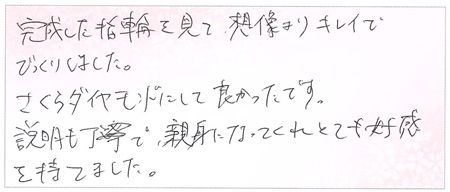 完成した指輪を見て想像よりキレイで
びっくりしました。
さくらダイヤモンドにして良かったです。
説明も丁寧で、親身になってくれとても好感
を持てました。